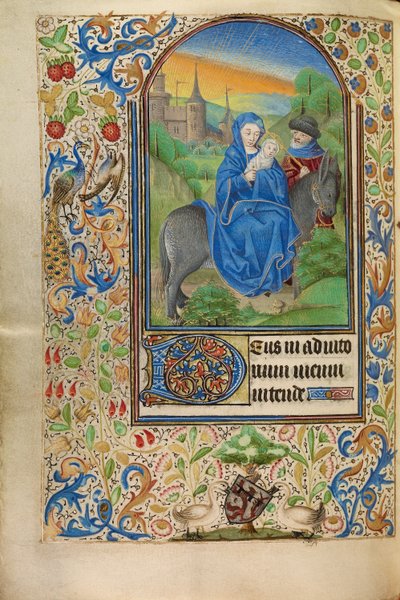 DEus in adiuto
rium meum
intende